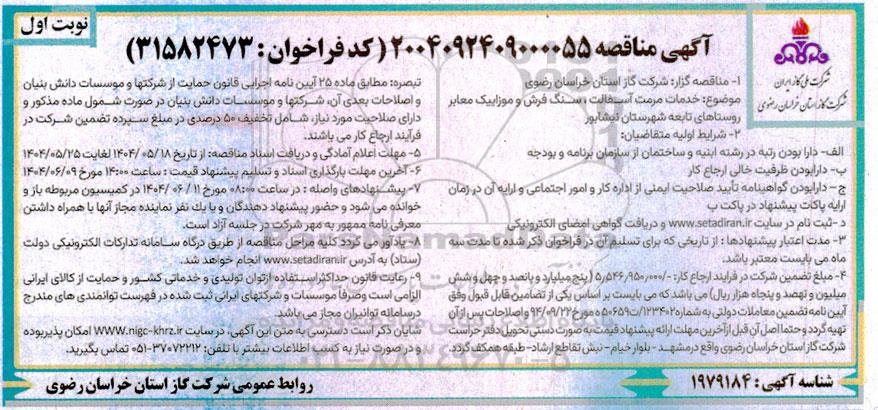 نوبت اول
آگهی مناقصه ۲۰۰۴۰۹۲۴۰۹۰۰۰۰۵۵ (کد فراخوان: ۳۱۵۸۲۴۷۳)
شرکت ملی گاز ایران
شرکت گاز استان خراسان رضوی
۱- مناقصه گزار: شرکت گاز استان خراسان رضوی
موضوع: خدمات مرمت آسفالت، سنگ فرش و موزاییک معابر
روستاهای تابعه شهرستان نیشابور
۲- شرایط اولیه متقاضیان:
الف- دارا بودن رتبه در رشته ابنیه و ساختمان از سازمان برنامه و بودجه
ب- دارابودن ظرفیت خالی ارجاع کار
ج- دارابودن گواهینامه تأیید صلاحیت ایمنی از اداره کار و امور اجتماعی و ارایه آن در زمان
ارایه پاکات پیشنهاد در پاکت ب
د- ثبت نام در سایت www.setadiran.ir و دریافت گواهی امضای الکترونیکی
۳- مدت اعتبار پیشنهادها: از تاریخی که برای تسلیم آن در فراخوان ذکر شده تا مدت سه
ماه می بایست معتبر باشد.
۴- مبلغ تضمین شرکت در فرایند ارجاع کار: -/۵,۵۴۶,۹۵۰,۰۰۰ (پنج میلیارد و پانصد و چهل و شش
میلیون و نهصد و پنجاه هزار ریال) می باشد که می بایست بر اساس یکی از تضامین قابل قبول وفق
آیین نامه تضمین معاملات دولتی به شماره ۱۲۳۴۰۲/ت۵۰۶۵۹ه مورخ ۹۴/۰۹/۲۲ و اصلاحات پس از آن
تهیه گردد و حتما اصل آن قبل از آخرین مهلت ارائه پیشنهاد قیمت به صورت دستی تحویل دفتر حراست
شرکت گاز استان خراسان رضوی واقع در مشهد - بلوار خیام - نبش تقاطع ارشاد - طبقه همکف گردد.
تبصره: مطابق ماده ۲۵ آیین نامه اجرایی قانون حمایت از شرکتها و موسسات دانش بنیان
و اصلاحات بعدی آن، شرکتها و موسسات دانش بنیان در صورت شمول ماده مذکور و
دارای صلاحیت مورد نیاز، شامل تخفیف ۵۰ درصدی در مبلغ سپرده تضمین شرکت در
فرآیند ارجاع کار می باشند.
۵- مهلت اعلام آمادگی و دریافت اسناد مناقصه: از تاریخ ۱۴۰۴/۰۵/۱۸ لغایت ۱۴۰۴/۰۵/۲۵
۶- آخرین مهلت بارگذاری اسناد و تسلیم پیشنهاد قیمت: ساعت ۱۴:۰۰ مورخ ۱۴۰۴/۰۶/۰۹
۷- پیشنهادهای واصله: در ساعت ۰۸:۰۰ مورخ ۱۱ / ۱۴۰۴/۰۶ در کمیسیون مربوطه باز و
خوانده می شود و حضور پیشنهاد دهندگان و یا یك نفر نماینده مجاز آنها با همراه داشتن
معرفی نامه ممهور به مهر شرکت در جلسه آزاد است.
۸- یادآور می گردد کلیه مراحل مناقصه از طریق درگاه سامانه تدارکات الکترونیکی دولت
(ستاد) به آدرس www.setadiran.ir انجام خواهد شد.
۹- رعایت قانون حداکثر استفاده از توان تولیدی و خدماتی کشور و حمایت از کالای ایرانی
الزامی است و صرفاً موسسات و شرکتهای ایرانی ثبت شده در فهرست توانمندی های مندرج
در سامانه توانیران مجاز می باشد.
شایان ذکر است دسترسی به متن این آگهی، در سایت WWW.nigc-khrz.ir امکان پذیر بوده
و در صورت نیاز به کسب اطلاعات بیشتر با تلفن: ۳۷۰۷۲۲۱۲-۰۵۱ تماس بگیرید.
شناسه آگهی: ۱۹۷۹۱۸۴
روابط عمومی شرکت گاز استان خراسان رضوی